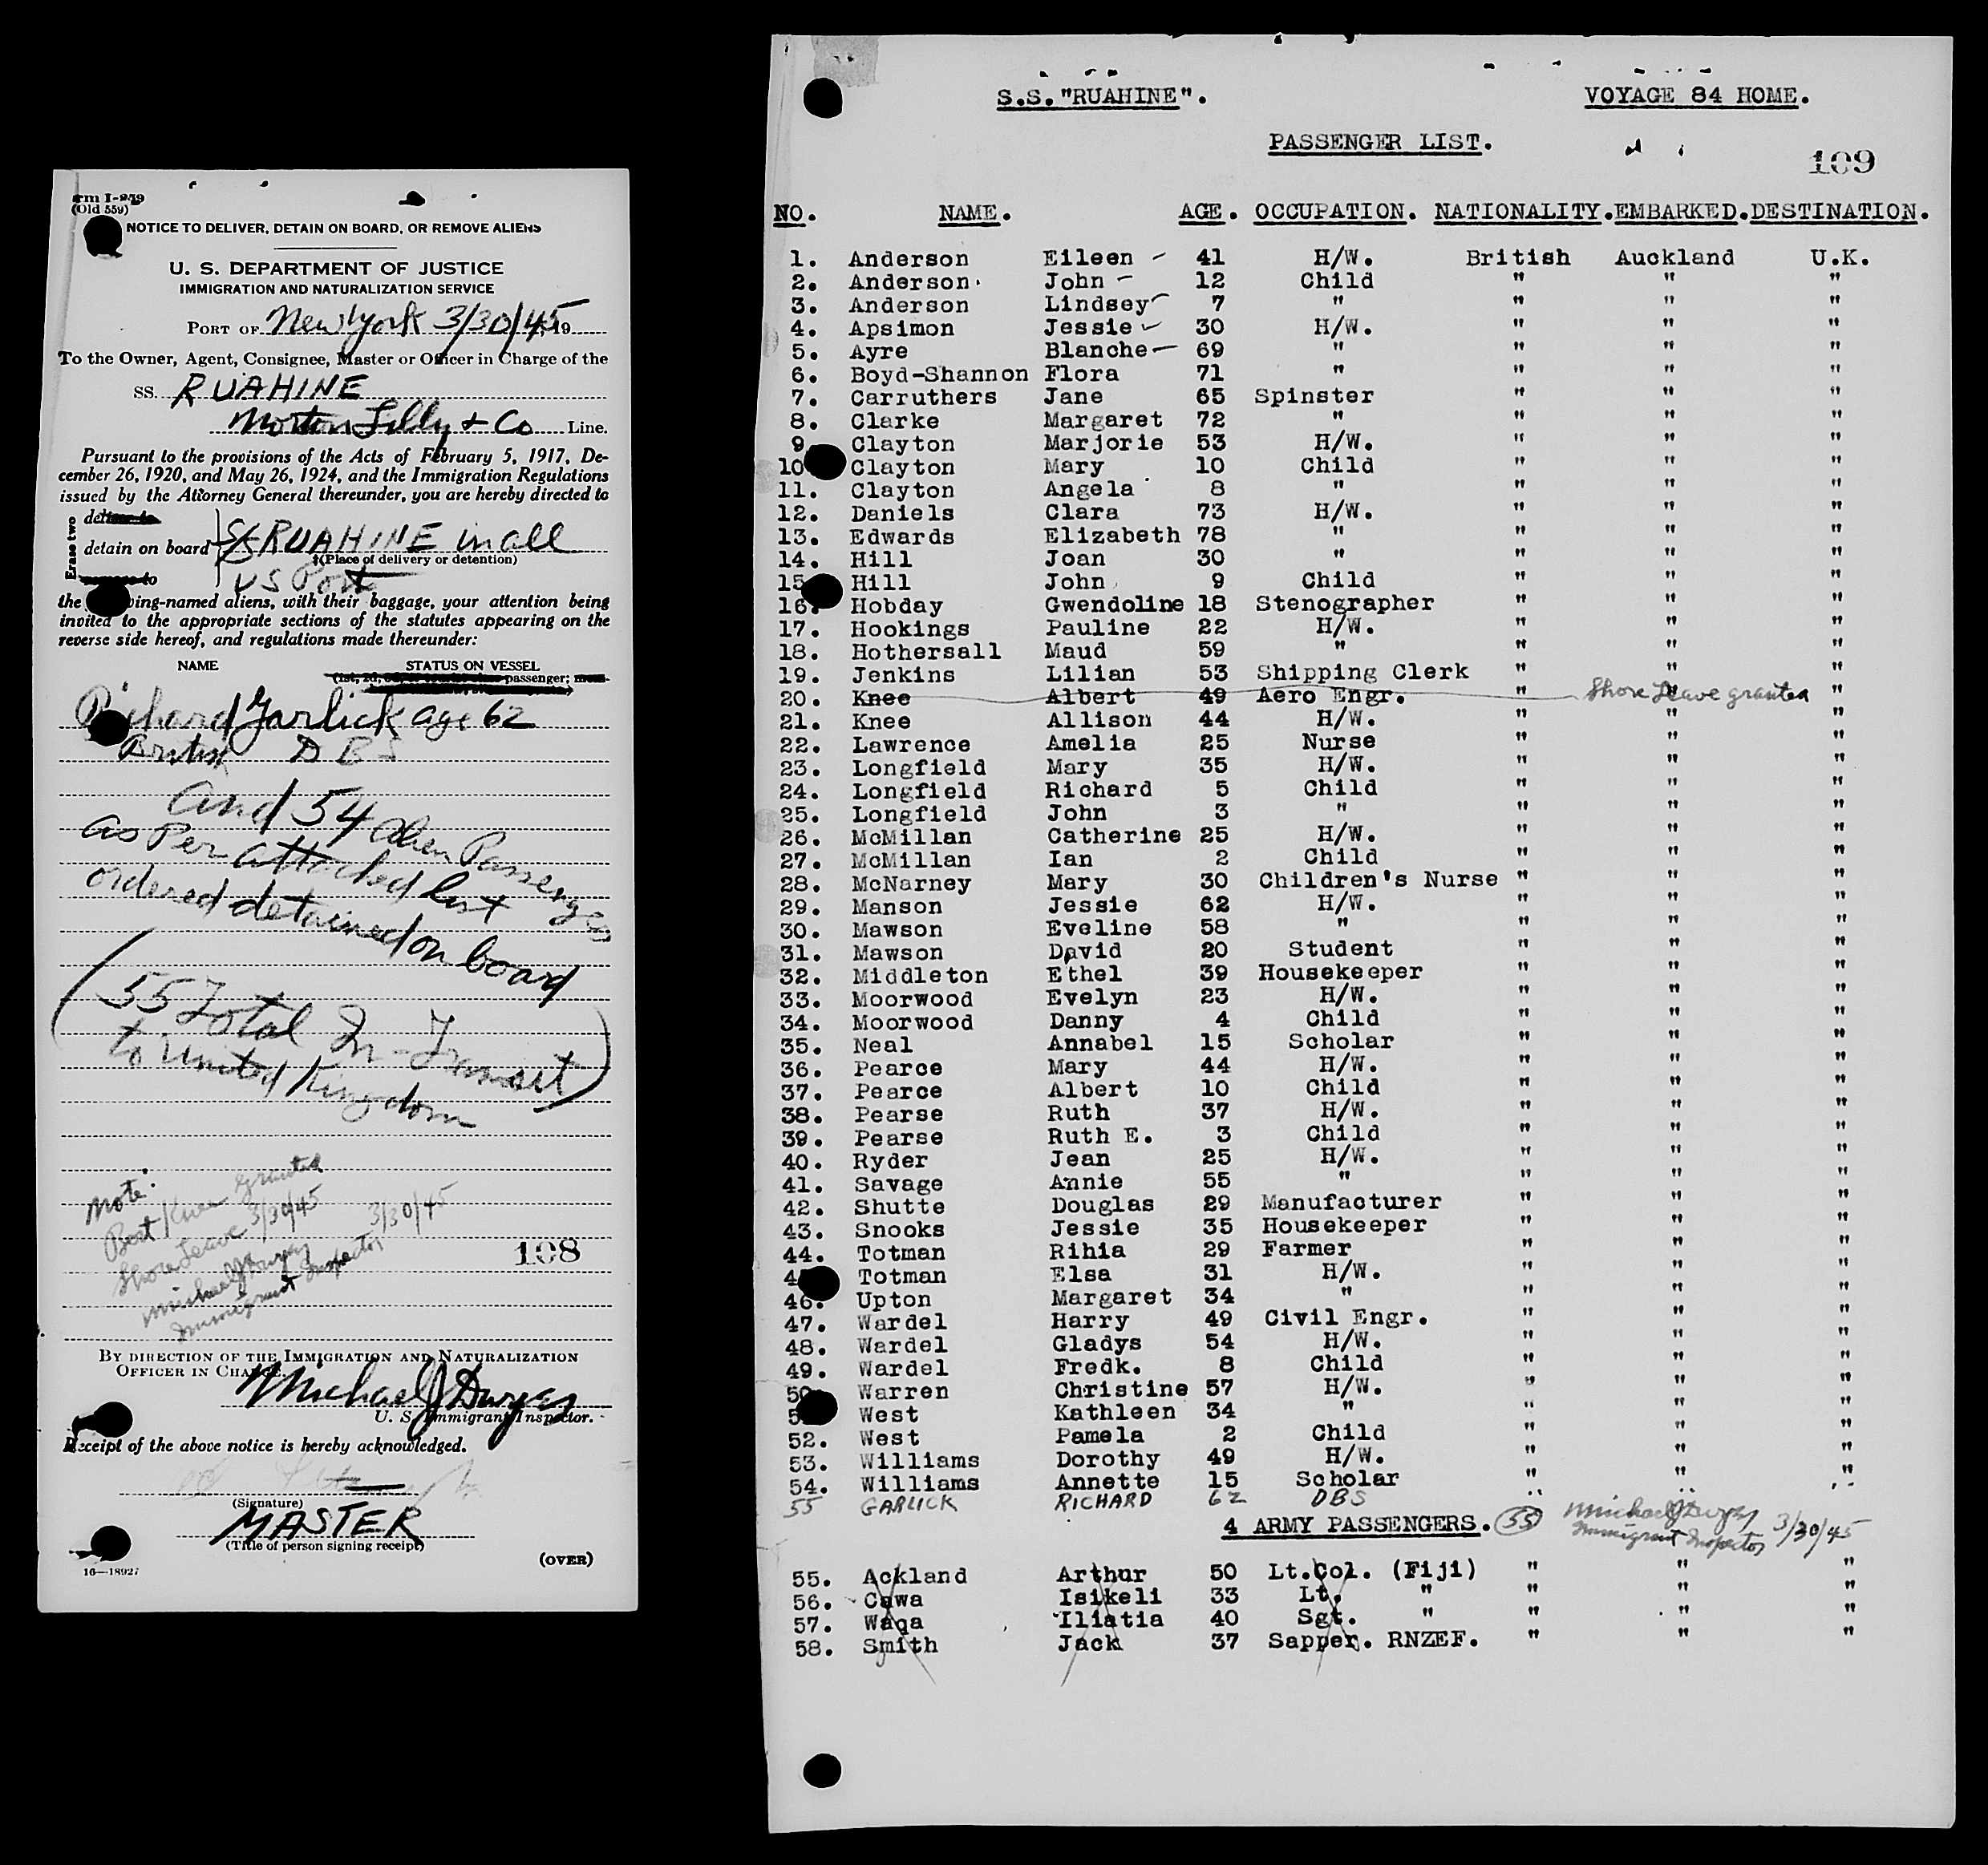 Form I-259
(Old 559)
NOTICE TO DELIVER, DETAIN ON BOARD, OR REMOVE ALIENS
U. S. DEPARTMENT OF JUSTICE
IMMIGRATION AND NATURALIZATION SERVICE
PORT OF New York 3/30/45, 19
To the Owner, Agent, Consignee, Master or Officer in Charge of the
SS. RUAHINE
Norton Lilly + Co Line.
Pursuant to the provisions of the Acts of February 5, 1917, De-
cember 26, 1920, and May 26, 1924, and the Immigration Regulations
issued by the Attorney General thereunder, you are hereby directed to
Erase two
deliver to
detain on board SS RUAHINE in all
†(Place of delivery or detention)
remove to US Ports
the following-named aliens, with their baggage, your attention being
invited to the appropriate sections of the statutes appearing on the
reverse side hereof, and regulations made thereunder:
NAME STATUS ON VESSEL
passenger;
Richard Garlick age 62
British DBS
and 54 Alien Passengers
as Per attached list
ordered detained on board
(55 Total In-Transit
to United Kingdom)
Note:
Bert Knee granted
Shore Leave 3/30/45
Michael J Dwyer 3/30/45
Immigrant Inspector
108
BY DIRECTION OF THE IMMIGRATION AND NATURALIZATION
OFFICER IN CHARGE.
Michael J Dwyer
U. S. Immigrant Inspector.
Receipt of the above notice is hereby acknowledged.
(Signature)
MASTER
(Title of person signing receipt)
(OVER)
16—18927
S.S."RUAHINE". VOYAGE 84 HOME.
PASSENGER LIST.
109
NO. NAME. AGE. OCCUPATION. NATIONALITY. EMBARKED. DESTINATION.
1. Anderson Eileen 41 H/W. British Auckland U.K.
2. Anderson John 12 Child " " "
3. Anderson Lindsey 7 " " " "
4. Apsimon Jessie 30 H/W. " " "
5. Ayre Blanche 69 " " " "
6. Boyd-Shannon Flora 71 " " " "
7. Carruthers Jane 65 Spinster " " "
8. Clarke Margaret 72 " " " "
9. Clayton Marjorie 53 H/W. " " "
10 Clayton Mary 10 Child " " "
11. Clayton Angela 8 " " " "
12. Daniels Clara 73 H/W. " " "
13. Edwards Elizabeth 78 " " " "
14. Hill Joan 30 " " " "
15 Hill John 9 Child " " "
16. Hobday Gwendoline 18 Stenographer " " "
17. Hookings Pauline 22 H/W. " " "
18. Hothersall Maud 59 " " " "
19. Jenkins Lilian 53 Shipping Clerk " " "
20. Knee Albert 49 Aero Engr. " Shore Leave granted "
21. Knee Allison 44 H/W. " " "
22. Lawrence Amelia 25 Nurse " " "
23. Longfield Mary 35 H/W. " " "
24. Longfield Richard 5 Child " " "
25. Longfield John 3 " " " "
26. McMillan Catherine 25 H/W. " " "
27. McMillan Ian 2 Child " " "
28. McNarney Mary 30 Children's Nurse " " "
29. Manson Jessie 62 H/W. " " "
30. Mawson Eveline 58 " " " "
31. Mawson David 20 Student " " "
32. Middleton Ethel 39 Housekeeper " " "
33. Moorwood Evelyn 23 H/W. " " "
34. Moorwood Danny 4 Child " " "
35. Neal Annabel 15 Scholar " " "
36. Pearce Mary 44 H/W. " " "
37. Pearce Albert 10 Child " " "
38. Pearse Ruth 37 H/W. " " "
39. Pearse Ruth E. 3 Child " " "
40. Ryder Jean 25 H/W. " " "
41. Savage Annie 55 " " " "
42. Shutte Douglas 29 Manufacturer " " "
43. Snooks Jessie 35 Housekeeper " " "
44. Totman Rihia 29 Farmer " " "
4 Totman Elsa 31 H/W. " " "
46. Upton Margaret 34 " " " "
47. Wardel Harry 49 Civil Engr. " " "
48. Wardel Gladys 54 H/W. " " "
49. Wardel Fredk. 8 Child " " "
50. Warren Christine 57 H/W. " " "
5 West Kathleen 34 " " " "
52. West Pamela 2 Child " " "
53. Williams Dorothy 49 H/W. " " "
54. Williams Annette 15 Scholar " " "
55 GARLICK RICHARD 62 DBS " " "
4 ARMY PASSENGERS. 55 Michael J Dwyer
Immigrant Inspector 3/30/45
55. Ackland Arthur 50 Lt.Col. (Fiji) " " "
56. Cawa Isikeli 33 Lt. " " " "
57. Waqa Iliatia 40 Sgt. " " " "
58. Smith Jack 37 Sapper. RNZEF. " " "